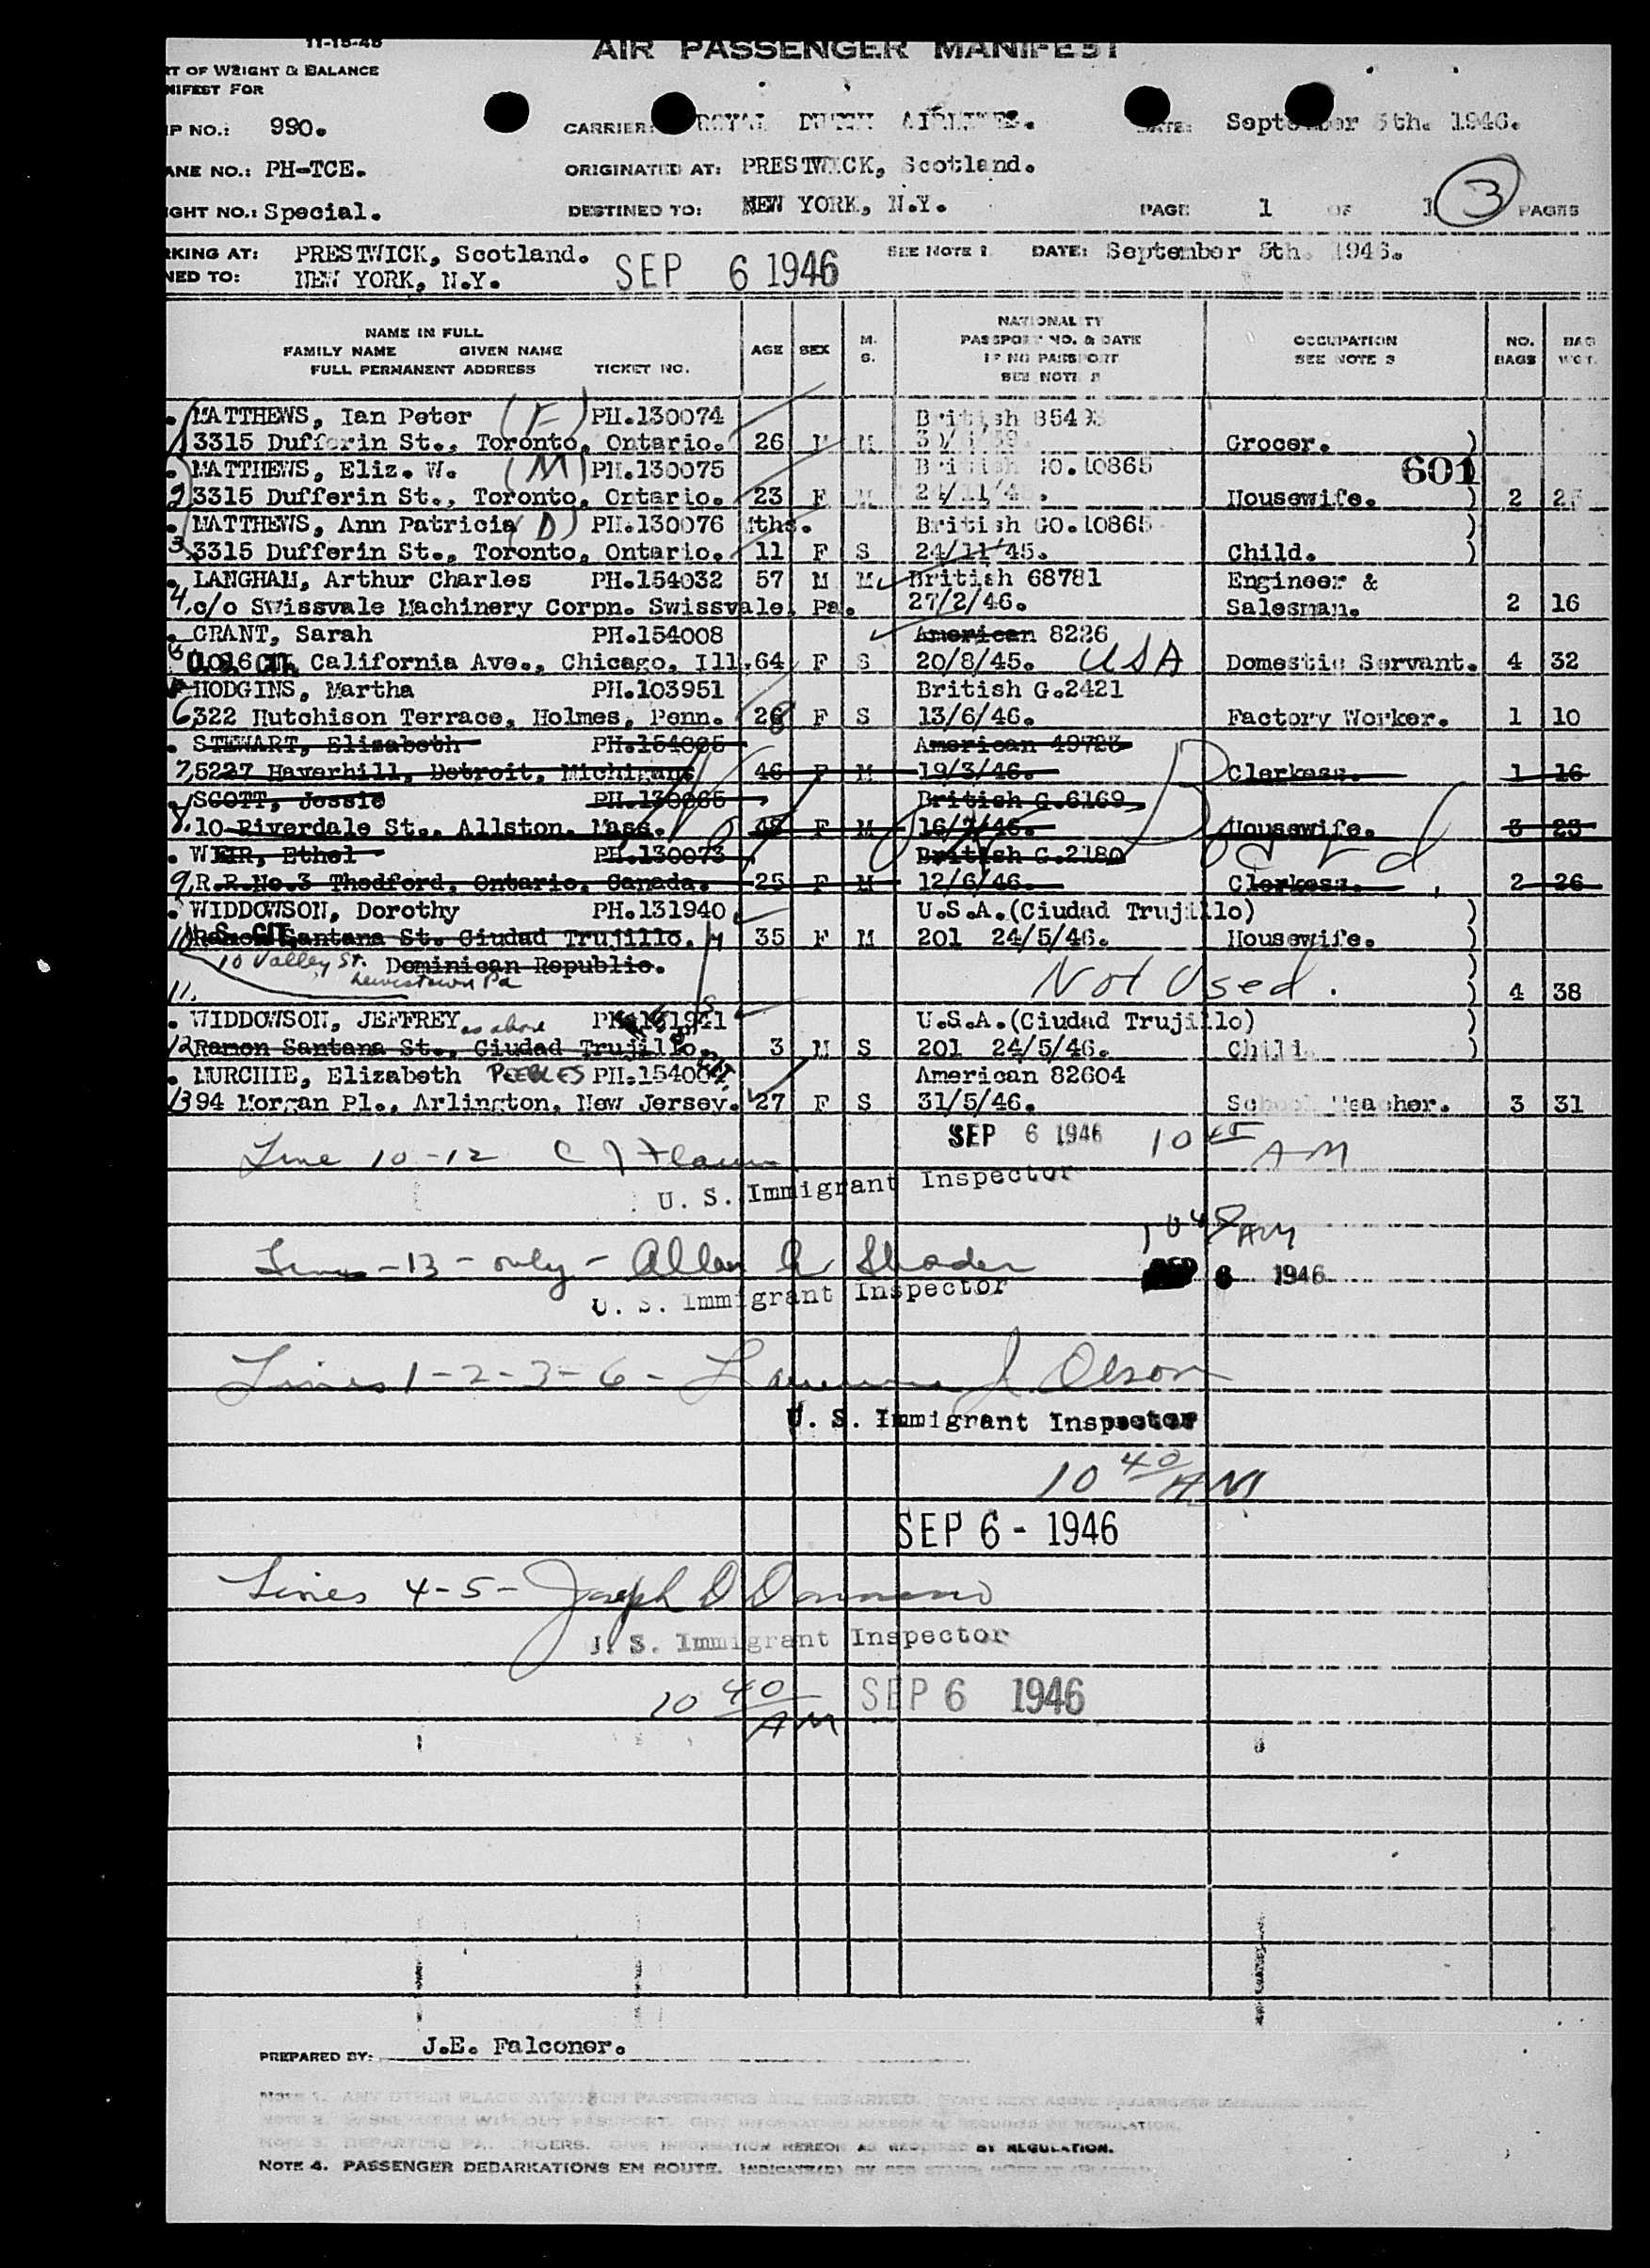 11-15-45
AIR PASSENGER MANIFEST
RT OF WEIGHT & BALANCE
NIFEST FOR
IP NO.: 990. CARRIER: ROYAL DUTCH AIRLINES. DATE: September 5th. 1946.
ANE NO.: PH-TCE. ORIGINATED AT: PRESTWICK, Scotland.
IGHT NO.: Special. DESTINED TO: NEW YORK, N.Y. PAGE 1 OF 1 3 PAGES
RKING AT: PRESTWICK, Scotland. SEE NOTE 1 DATE: September 5th. 1946.
NED TO: NEW YORK, N.Y. SEP 6 1946
NAME IN FULL
FAMILY NAME GIVEN NAME
FULL PERMANENT ADDRESS TICKET NO. AGE SEX M. S. NATIONALITY PASSPORT NO. & DATE IF NO PASSPORT SEE NOTE 2 OCCUPATION SEE NOTE 3 NO. BAGS BAG WGT.
MATTHEWS, Ian Peter (F) PH.130074 British
1 3315 Dufferin St., Toronto, Ontario. 26 M M Grocer. )
MATTHEWS, Eliz. W. (M) PH.130075 British GO.10865 601
2 3315 Dufferin St., Toronto, Ontario. 23 F M 24/11/45. Housewife. ) 2
MATTHEWS, Ann Patricia (D) PH.130076 Mths. British GO.10865 )
3 3315 Dufferin St., Toronto, Ontario. 11 F S 24/11/45. Child. )
LANGHAM, Arthur Charles PH.154032 57 M M British 68781 Engineer &
4. c/o Swissvale Machinery Corpn. Swissvale. Pa. 27/2/46. Salesman. 2 16
GRANT, Sarah PH.154008 American 8226
California Ave., Chicago, Ill. 64 F S 20/8/45. USA Domestic Servant. 4 32
HODGINS, Martha PH.103951 British G.2421
6 322 Hutchison Terrace, Holmes, Penn. 28 F S 13/6/46. Factory Worker. 1 10
STEWART, Elizabeth PH.154005 American 49723
7 5227 Haverhill, Detroit, Michigan. 46 F M 19/3/46. Clerkess. 1 16
SCOTT, Jessie PH.130065 British G.6169
8. 10 Riverdale St., Allston. Mass. 48 F M 16/7/46. Housewife. 3 23
WEIR, Ethel PH.130073 British G.2180
9 R.R.No.3 Thedford, Ontario, Canada. 25 F M 12/6/46. Clerkess. 2 26
Not Bo'rd
WIDDOWSON, Dorothy PH.131940 U.S.A.(Ciudad Trujillo) )
10 Ramon Santana St. Ciudad Trujillo. 35 F M 201 24/5/46. Housewife. )
10 Valley St. Dominican Republic.
Lewistown Pa
11. Not Used. ) 4 38
WIDDOWSON, JEFFREY as above PH.131941 U.S.A.(Ciudad Trujillo) )
12 Ramon Santana St., Ciudad Trujillo. 3 M S 201 24/5/46. Child. )
MURCHIE, Elizabeth PEEBLES PH.154004 American 82604
13 94 Morgan Pl., Arlington, New Jersey. 27 F S 31/5/46. School Teacher. 3 31
Line 10-12 SEP 6 1946 10 45 AM
U. S. Immigrant Inspector
Line - 13 - only - Allan A Shader 10 45 AM
U. S. Immigrant Inspector SEP 6 1946
Lines 1-2-3-6- Lawrence J Olson
U. S. Immigrant Inspector
10 40 AM
SEP 6 - 1946
Lines 4-5- Joseph D
U. S. Immigrant Inspector
10 40 AM SEP 6 1946
PREPARED BY: J.E. Falconer.
NOTE 1. ANY OTHER PLACE AT WHICH PASSENGERS ARE EMBARKED.
NOTE 2. PASSENGERS WITHOUT PASSPORT. GIVE INFORMATION HEREON AS REQUIRED BY REGULATION.
NOTE 3. DEPARTING PASSENGERS. GIVE INFORMATION HEREON AS REQUIRED BY REGULATION.
NOTE 4. PASSENGER DEBARKATIONS EN ROUTE.